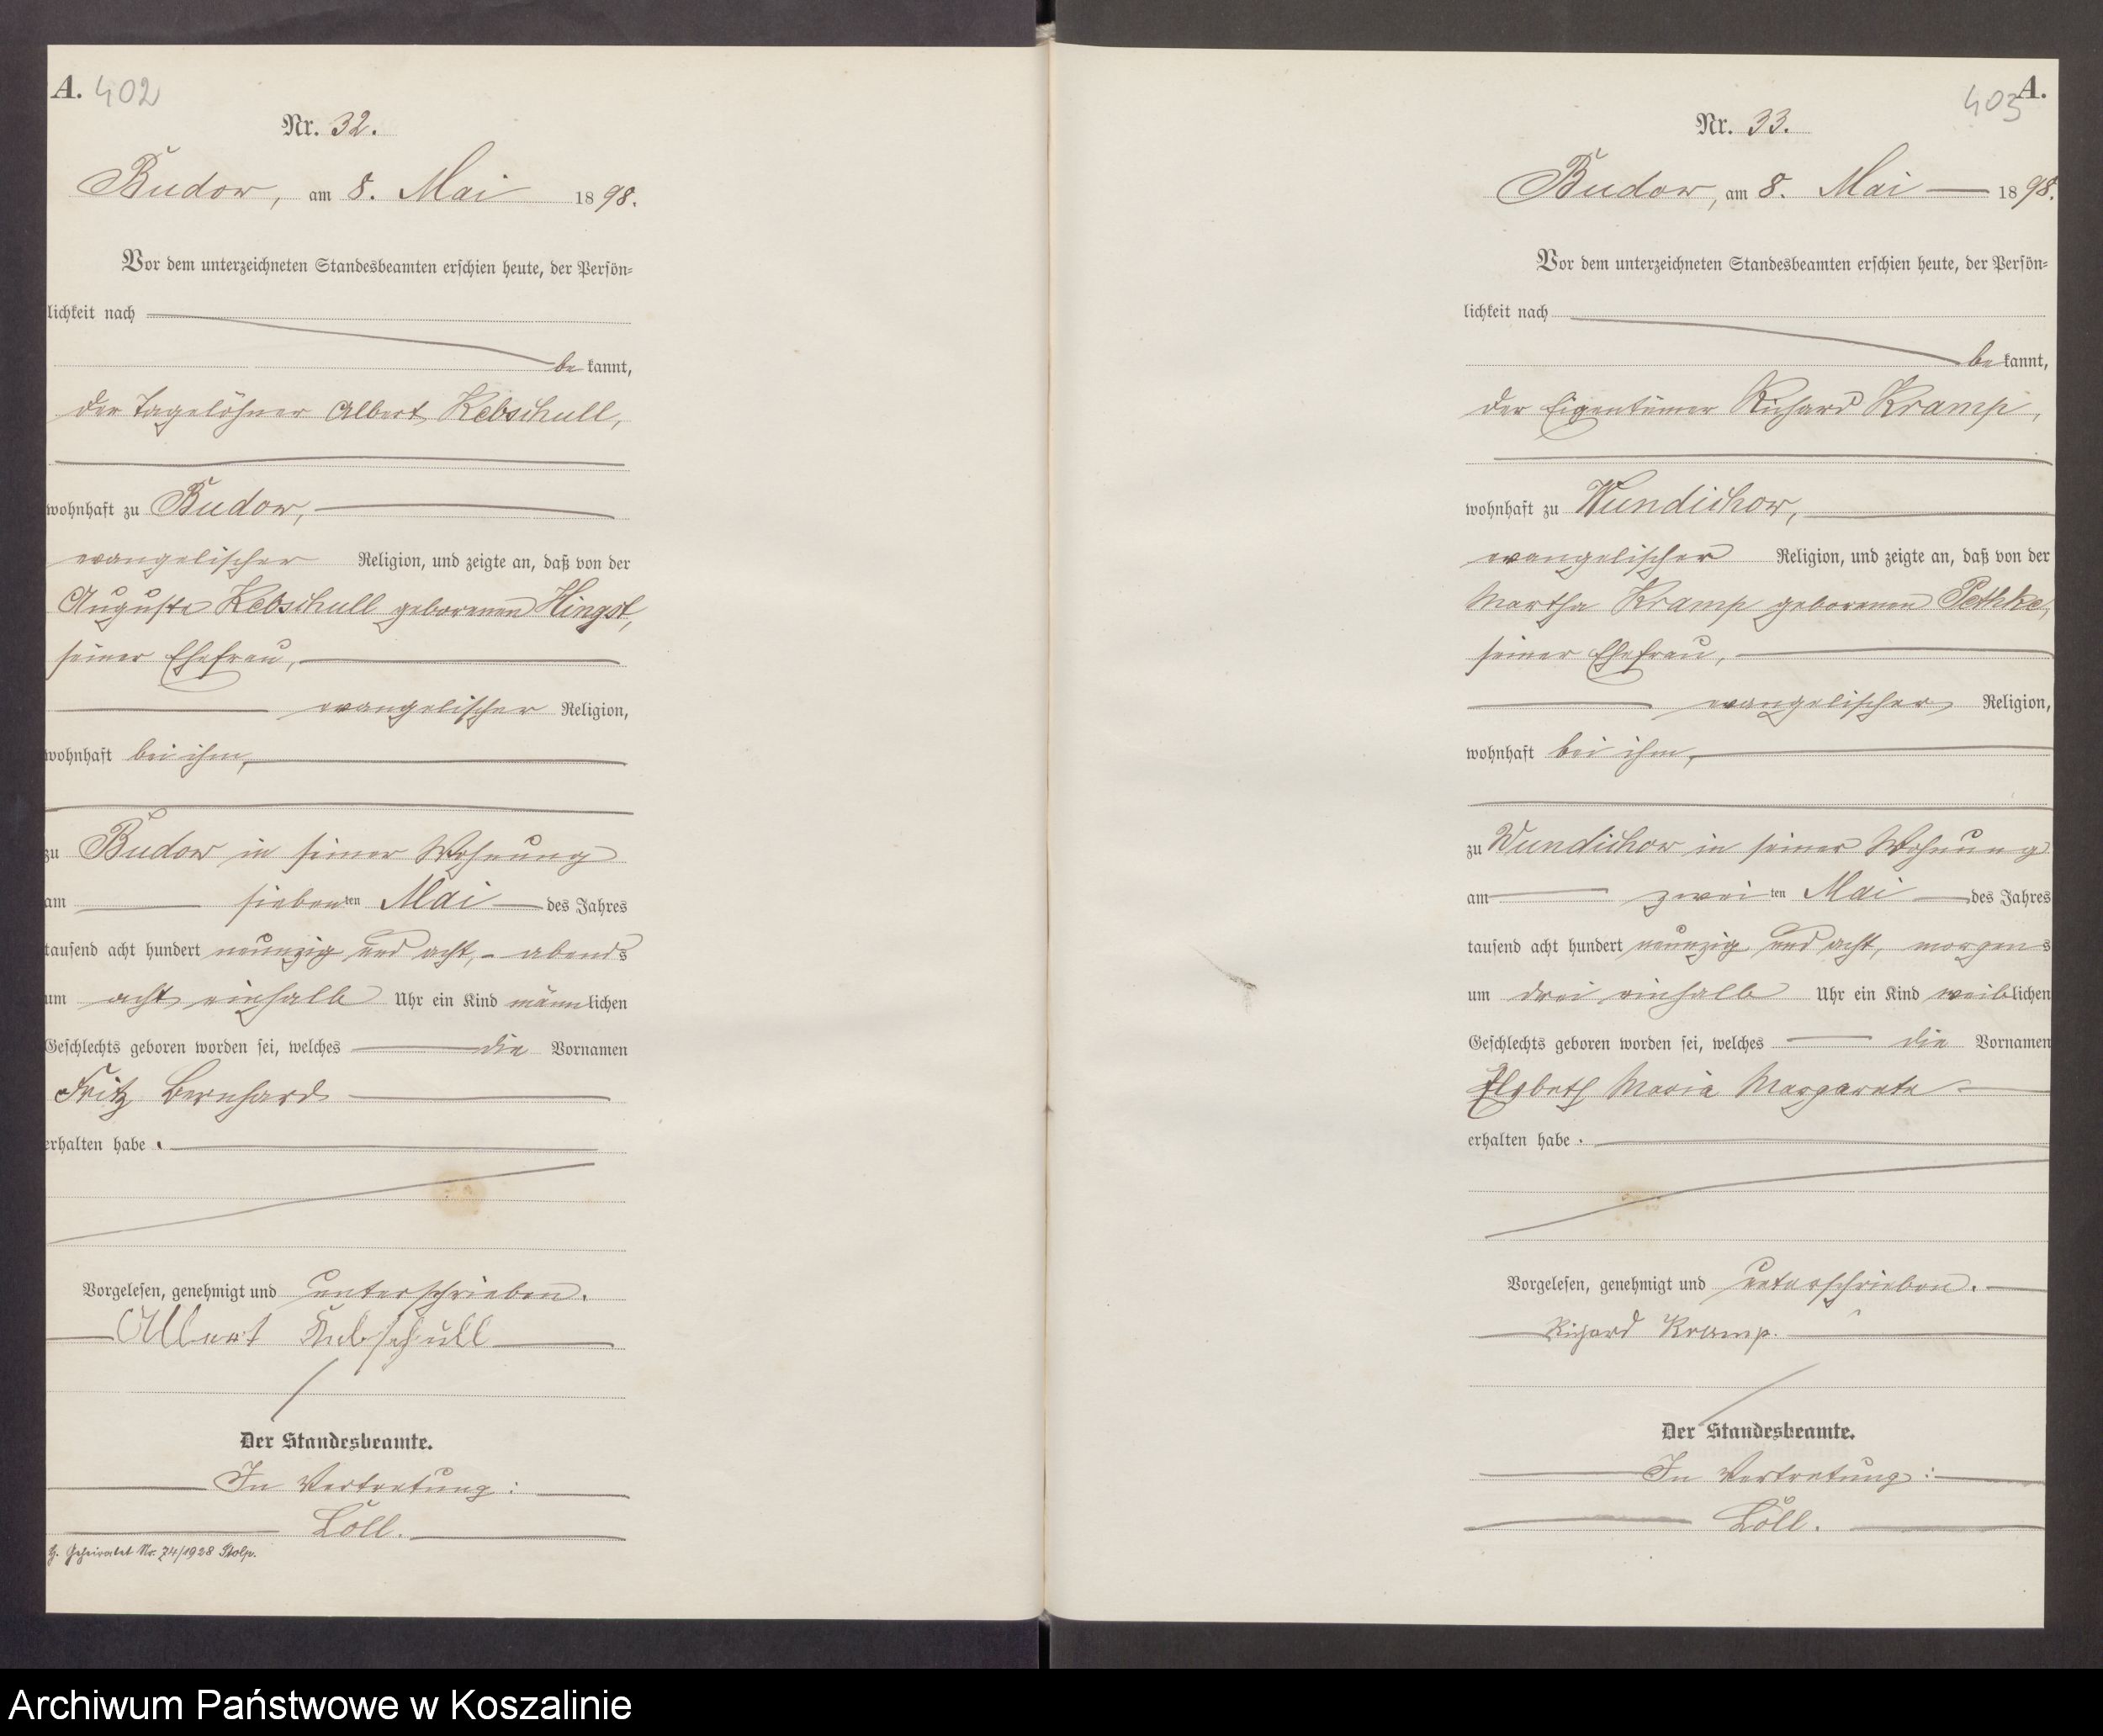 A. 402
Nr. 32.
Budow, am 8. Mai 1898.
Vor dem unterzeichneten Standesbeamten erschien heute, der Persön-
lichkeit nach
bekannt,
der Tagelöhner Albert Kebschull,
wohnhaft zu Budow,
evangelischer Religion, und zeigte an, daß von der
Auguste Kebschull geborenen Hingst,
seiner Ehefrau,
evangelischer Religion,
wohnhaft bei ihm,
zu Budow in seiner Wohnung
am siebenten Mai des Jahres
tausend acht hundert neunzig und acht, abends
um acht einhalb Uhr ein Kind männlichen
Geschlechts geboren worden sei, welches die Vornamen
Fritz Bernhard
erhalten habe.
Vorgelesen, genehmigt und unterschrieben.
Albert Kebschull
Der Standesbeamte.
In Vertretung:
Löll.
G. Geheiratet Nr. 74/1928 Stolp.
403 A.
Nr. 33.
Budow, am 8. Mai 1898.
Vor dem unterzeichneten Standesbeamten erschien heute, der Persön-
lichkeit nach
bekannt,
der Eigentümer Richard Kramp,
wohnhaft zu Wundichow,
evangelischer Religion, und zeigte an, daß von der
Martha Kramp geborenen Pethke,
seiner Ehefrau,
evangelischer Religion,
wohnhaft bei ihm,
zu Wundichow in seiner Wohnung
am zweiten Mai des Jahres
tausend acht hundert neunzig und acht, morgens
um drei einhalb Uhr ein Kind weiblichen
Geschlechts geboren worden sei, welches die Vornamen
Elsbeth Maria Margarete
erhalten habe.
Vorgelesen, genehmigt und unterschrieben.
Richard Kramp.
Der Standesbeamte.
In Vertretung:
Löll.
Archiwum Państwowe w Koszalinie